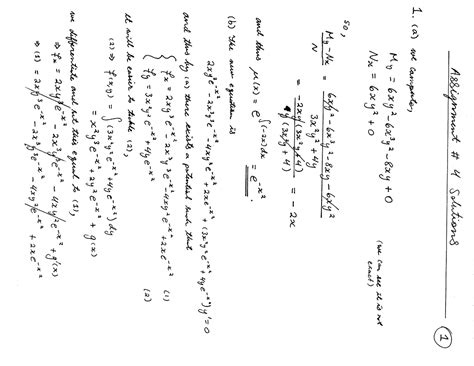 Assignment # 4 Solutions
1
1. (a) we compute,
My = 6xy² - 6x³y² - 8xy + 0
Nx = 6xy² + 0
(we can see it is not exact)
so,
(My - Nx)/N = (6xy² - 6x³y² - 8xy - 6xy²)/(3x²y² + 4y)
= -2xy(3x²y + 4)/(y(3x²y + 4)) = -2x
and thus μ(x) = e^∫(-2x)dx = e^-x².
(b) The new equation is
2xy³e^-x² - 2x³y³e^-x² - 4xy²e^-x² + 2xe^-x² + (3x²y²e^-x² + 4ye^-x²)y' = 0
and thus by (a) there exists a potential such that
fx = 2xy³e^-x² - 2x³y³e^-x² - 4xy²e^-x² + 2xe^-x² (1)
fy = 3x²y²e^-x² + 4ye^-x² (2)
it will be easier to tackle (2),
(2) ⇒ f(x,y) = ∫(3x²y²e^-x² + 4ye^-x²)dy
= x²y³e^-x² + 2y²e^-x² + g(x)
we differentiate and set this equal to (1),
⇒ fx = 2xy³e^-x² - 2x³y³e^-x² - 4xy²e^-x² + g'(x)
⇒ (1) = 2xy³e^-x² - 2x³y³e^-x² - 4xy²e^-x² + 2xe^-x²